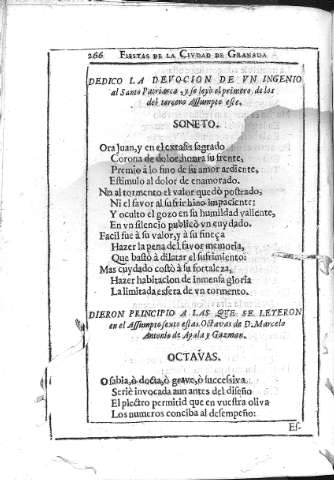 266 FIESTAS DE LA CIUDAD DE GRANADA
DEDICO LA DEVOCION DE VN INGENIO
al Santo Patriarca, y se leyò el primero de los
del tercero Assumpto este.
SONETO.
Ora Juan, y en el extasis sagrado
Corona de dolor, honra su frente,
Premio à lo fino de su amor ardiente,
Estimulo al dolor de enamorado.
No al tormento el valor quedò postrado,
Ni el favor al sufrir hizo impaciente;
Y oculto el gozo en su humildad valiente,
En vn silencio publicò vn cuydado.
Facil fue à su valor, y à su fineça
Hazer la pena del favor memoria,
Que bastò à dilatar el sufrimiento:
Mas cuydado costò à su fortaleza,
Hazer habitacion de inmensa gloria
La limitada esfera de vn tormento.
DIERON PRINCIPIO A LAS QUE SE LEYERON
en el Assumpto sexto estas Octavas de D. Marcelo
Antonio de Ayala y Guzman.
OCTAVAS.
O sabia, ò docta, ò grave, ò successiva
Seriè invocada aun antes del diseño
El plectro permitid que en vuestra oliva
Los numeros conciba al desempeño:
Es-